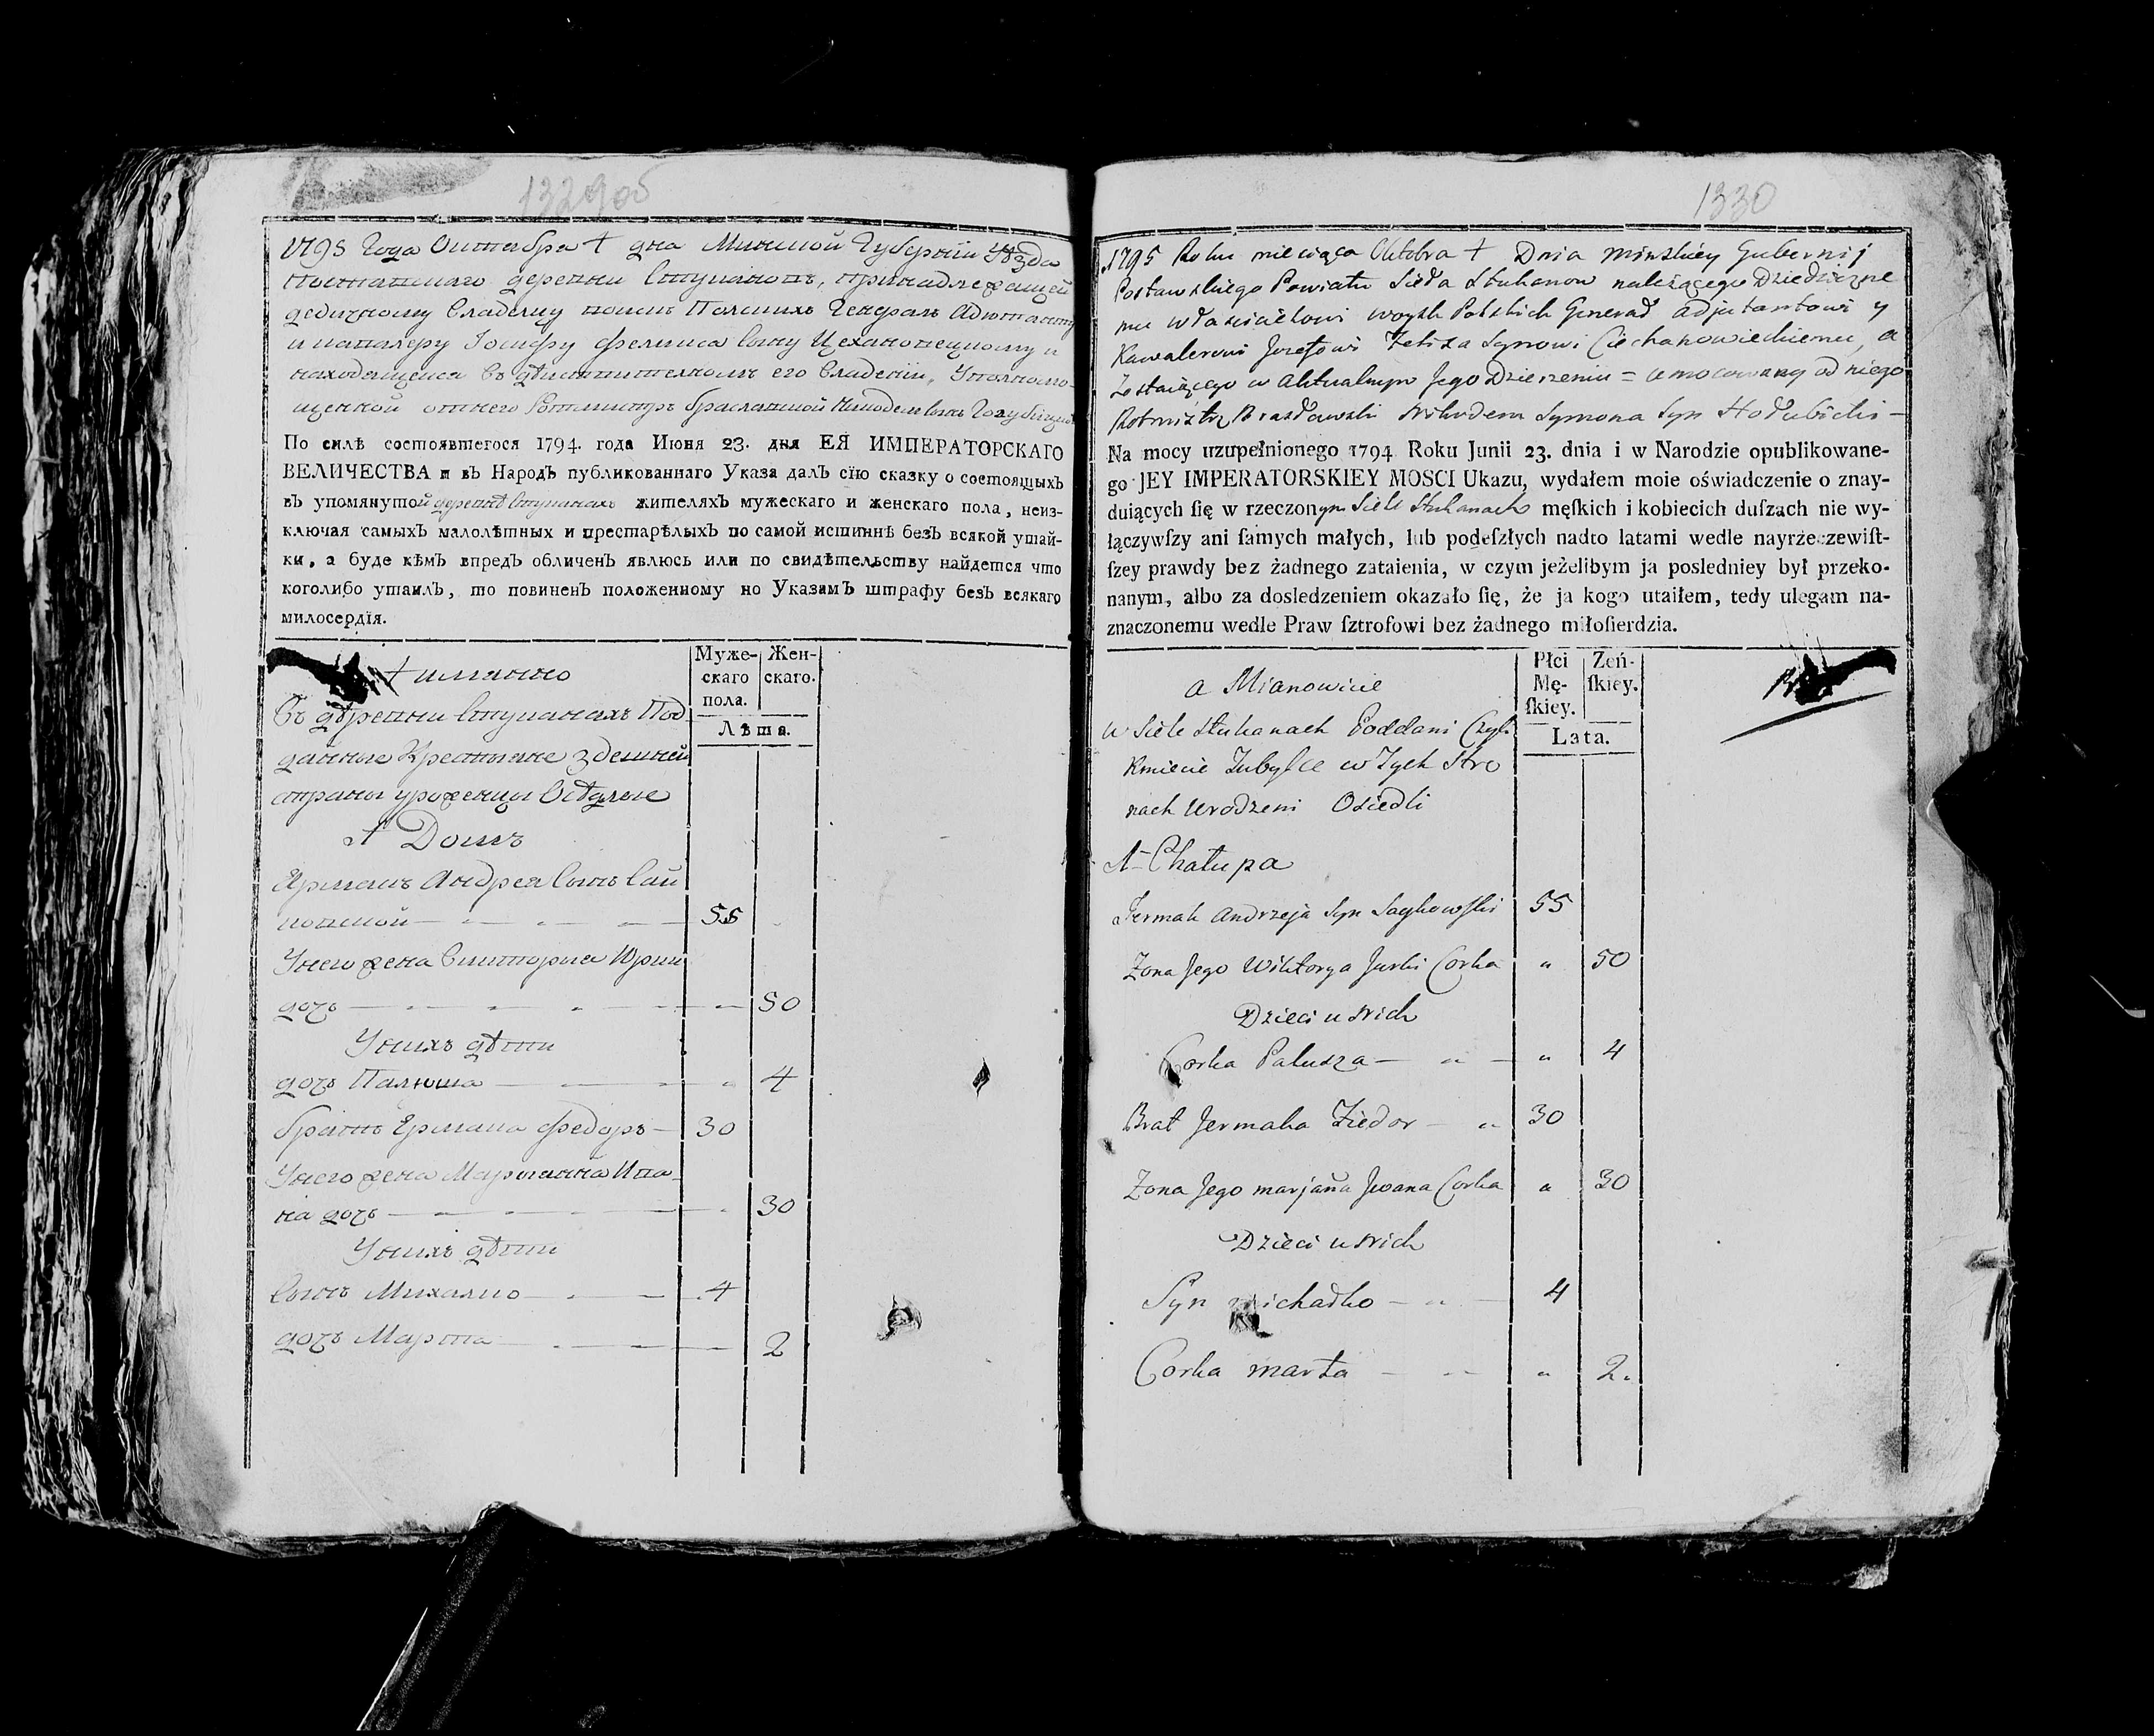 1329об
1795 Года Октября 1 дна Минской Губерніи Уѣзда
Поставскаго деревни Стукановъ, принадлежащей
дедичному Владелцу войскъ Полскихъ Генералъ Адютанту
и кавалеру Іосифу Феликса сыну Цехановецкому и
находящейся въ дѣйствителномъ его владеніи, Уполномо-
щенной отнего Ротмистръ Браславской
По силѣ состоявшегося 1794. года Июня 23. дня ЕЯ ИМПЕРАТОРСКАГО
ВЕЛИЧЕСТВА и въ Народъ публикованнаго Указа далъ сїю сказку о состоящыхъ
въ упомянутой деревнѣ Стуканахъ жителяхъ мужескаго и женскаго пола, неиз-
ключая самыхъ малолѣтныхъ и престарѣлыхъ по самой истиннѣ безъ всякой утай-
ки, а буде кѣмъ впредъ обличенъ явлюсь или по свидѣтельству найдется что
коголибо утаилъ, то повиненъ положенному по Указамъ штрафу безъ всякаго
милосердїя.
имянно
Муже-скаго пола. Жен-скаго.
Лѣта.
Въ деревни Стуканахъ Под
данные Крестьяне здешней
страны уроженцы Осѣдлые
1 Домъ
Ярмакъ Андрея сынъ Сай
ковской 55
Унего жена Викторыя Юрки
дочь 50
Унихъ дѣти
дочь Палюша 4
братъ Ермака Федоръ 30
Унего жена Марыанна Ива-
на дочь 30
Унихъ дѣти
сынъ Михалко 4
дочь Марта 2
1330
1795 Roku miesiąca Oktobra 1 Dnia Minskiey Gubernij
Postawskiego Powiatu Sioła Stukanow należącego Dziedziczne
mu Włascicielowi woysk Polskich Generał adjutantowi y
Kawalerowi Jozefowi Felixa Synowi Ciechanowieckiemu, a
Zostaiącego w Aktualnym Jego Dzierzeniu = umocowany od niego
Rotmistrz Brasławski Nikodem Symona Syn Hołubicki -
Na mocy uzupełnionego 1794 Roku Junii 23. dnia i w Narodzie opublikowane-
go JEY IMPERATORSKIEY MOSCI Ukazu, wydałem moie oświadczenie o znay-
duiących ſię w rzeczonym Siele Stukanach męſkich i kobiecich duſzach nie wy-
łączywſzy ani ſamych małych, lub podeſzłych nadto latami wedle nayrżeczewiſt-
ſzey prawdy bez żadnego zataienia, w czym jeżelibym ja posledniey był przeko-
nanym, albo za dosledzeniem okazało ſię, że ja kogo utaiłem, tedy ulegam na-
znaczonemu wedle Praw ſztrofowi bez żadnego miłoſierdzia.
a Mianowicie
Płci Mę-ſkiey. Zeń-ſkiey.
Lata.
w Siele Stukanach Poddani Czyli
Kmiecie Tubylce w Tych Stro
nach Urodzeni Osiedli
1 Chałupa
Jermak Andrzeja Syn Saykowski 55
Zona Jego Wiktorya Jurki Corka " 50
Dzieci u Nich
Corka Palusza " 4
Brat Jermaka Fiedor 30
Zona Jego marjana Jwana Corka " 30
Dzieci u Nich
Syn michałko 4
Corka marta " 2.